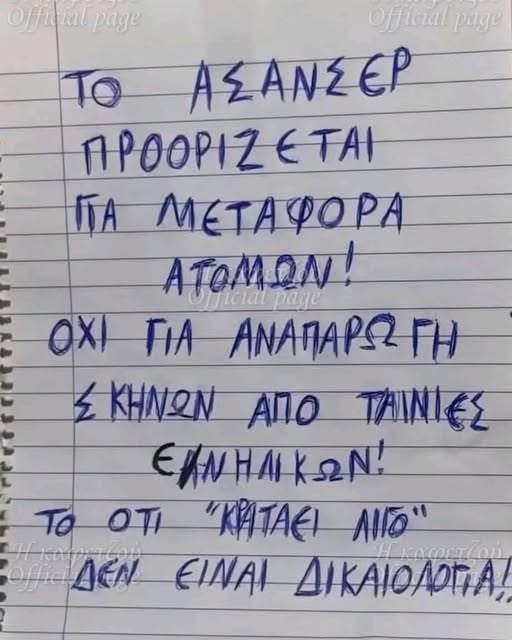 Η καφετζού
Official page
Η καφετζού
Official page
ΤΟ ΑΣΑΝΣΕΡ
ΠΡΟΟΡΙΖΕΤΑΙ
ΓΙΑ ΜΕΤΑΦΟΡΑ
ΑΤΟΜΩΝ!
Η καφετζού
Official page
ΟΧΙ ΓΙΑ ΑΝΑΠΑΡΩΓΗ
ΣΚΗΝΩΝ ΑΠΟ ΤΑΙΝΙΕΣ
ΕΝΗΛΙΚΩΝ!
ΤΟ ΟΤΙ "ΚΡΑΤΑΕΙ ΛΙΓΟ"
Η καφετζού
Official page
Η καφετζού
Official page
ΔΕΝ ΕΙΝΑΙ ΔΙΚΑΙΟΛΟΓΙΑ!!